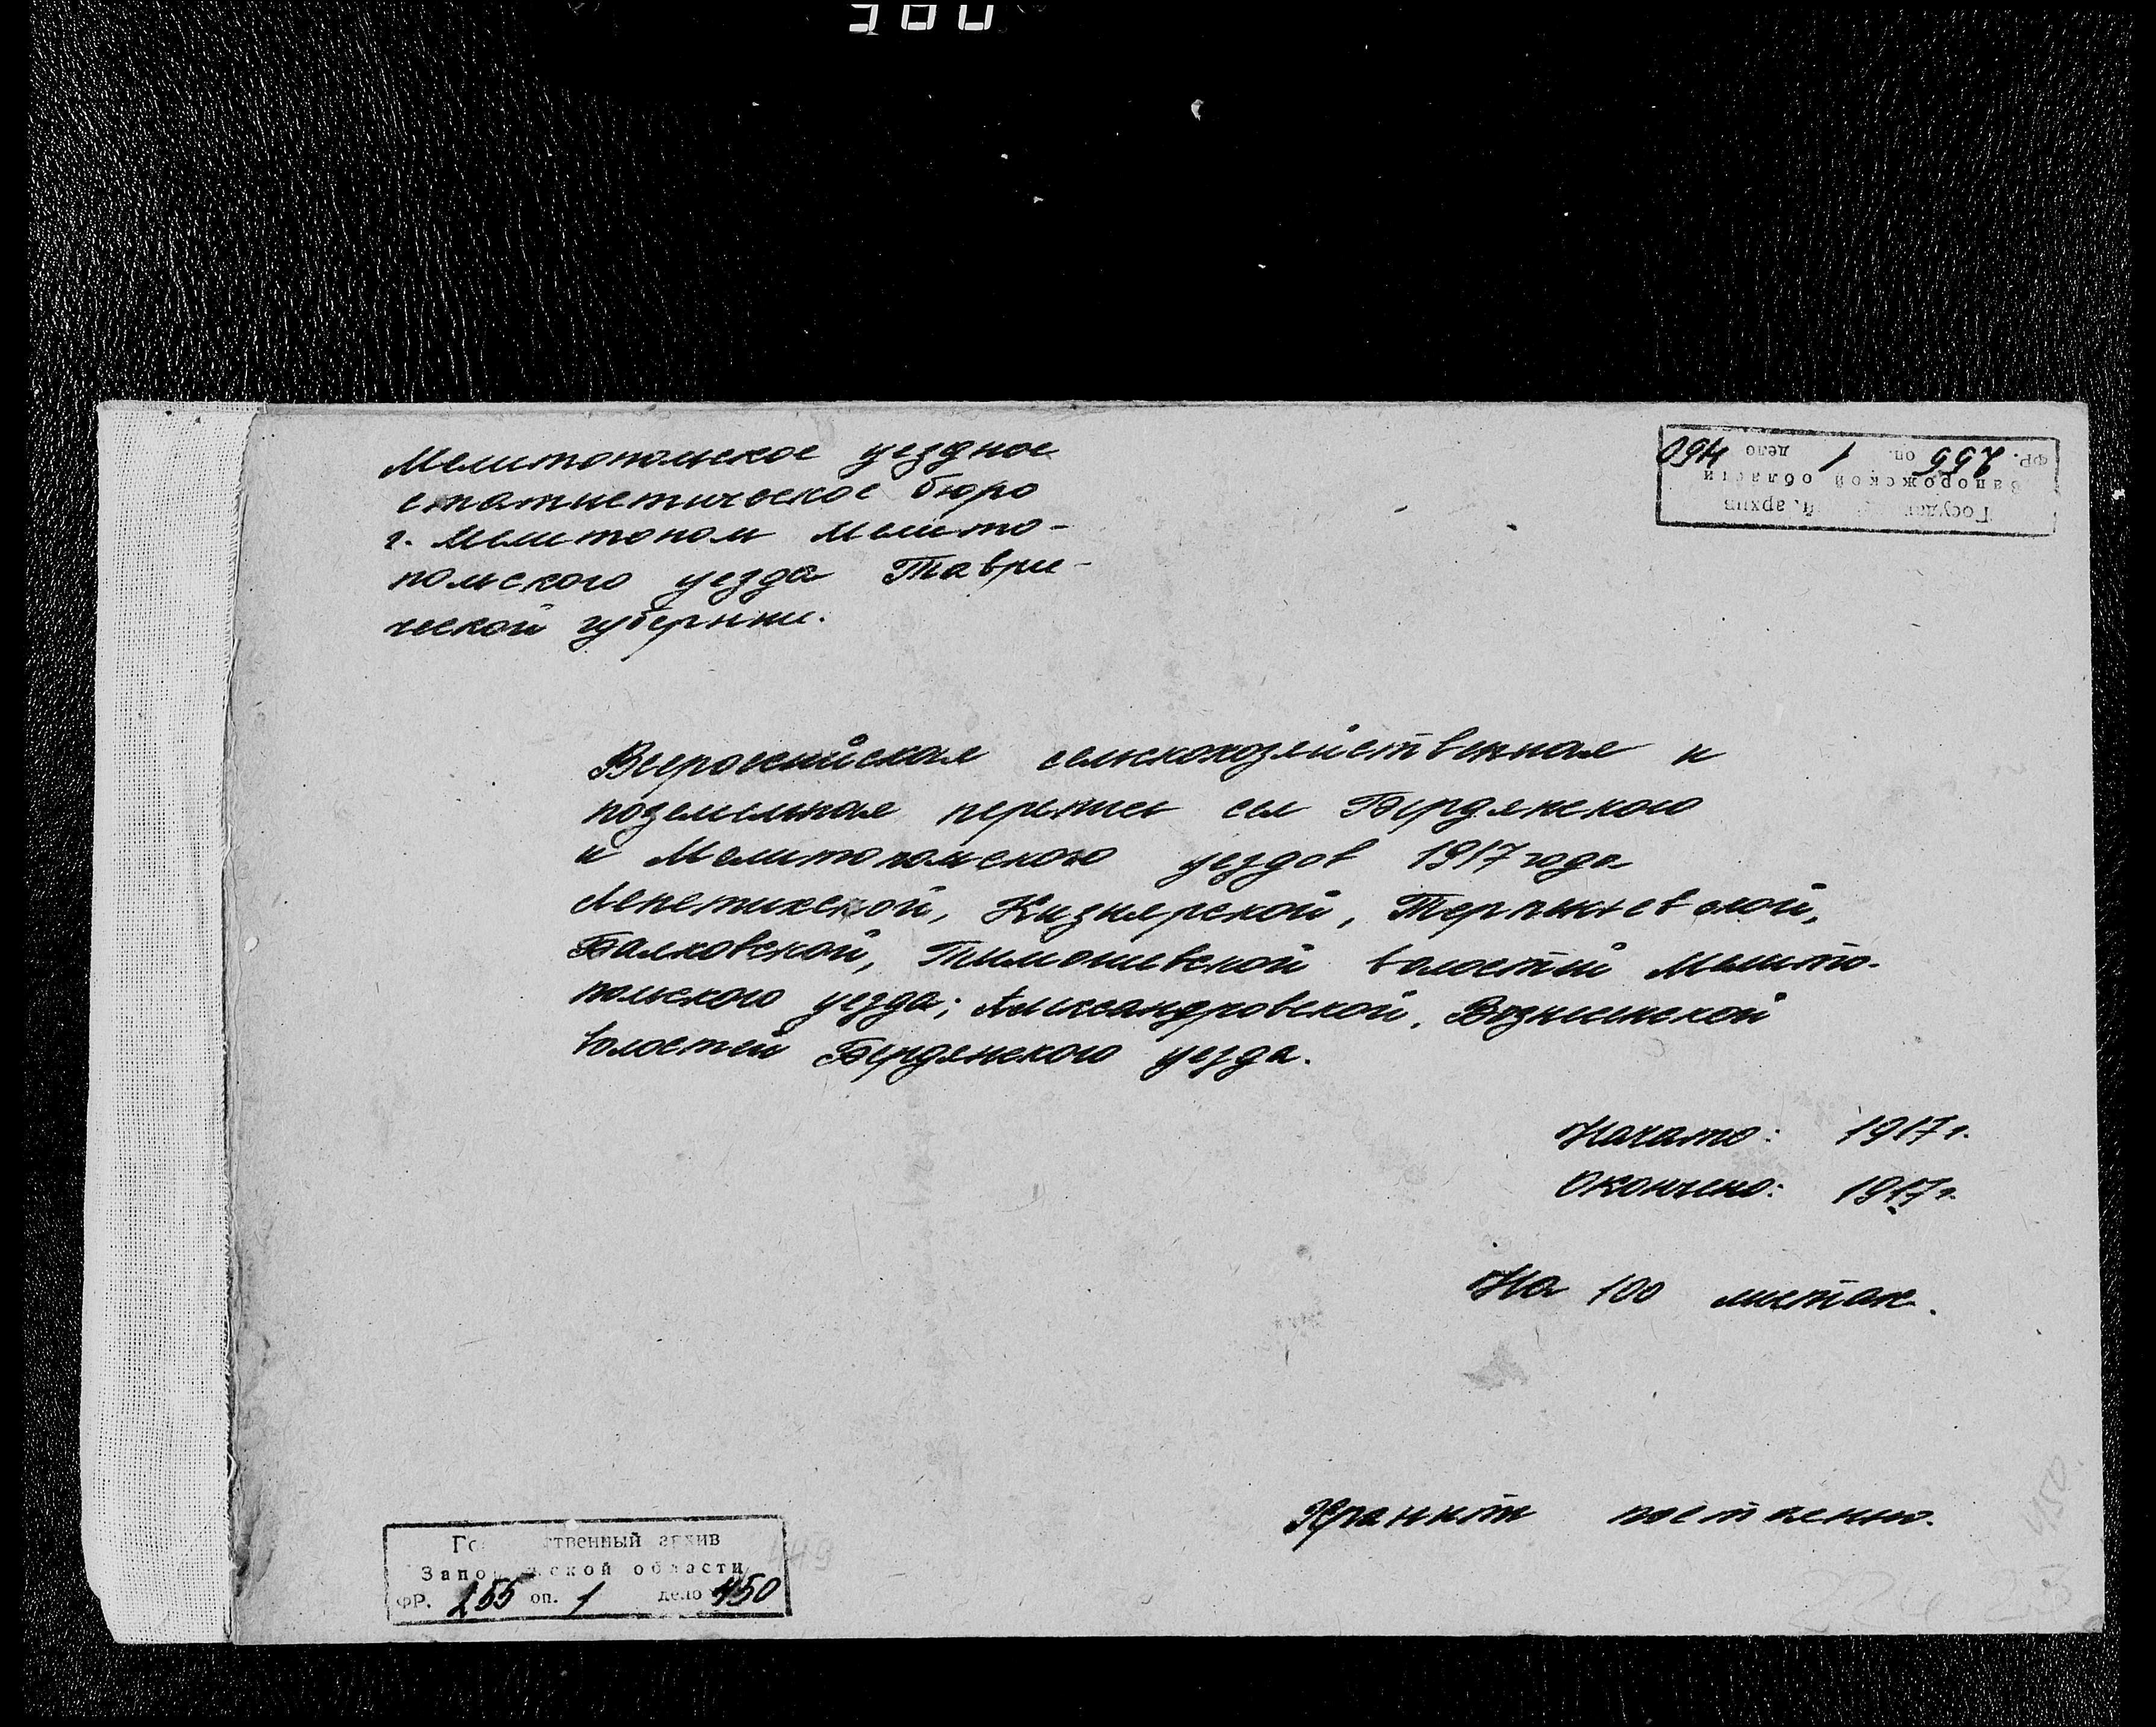 Мелитопольское уездное
статистическое бюро
г. Мелитополь Мелито-
польского уезда Таври-
ческой губернии.
Государ й архив
Запорожской области
ФР. 255 оп. 1 дело 450
Всероссийская сельскохозяйственная и
поземельная перепись сел Бердянского
и Мелитопольского уездов 1917 года
Лепетихской, Кизиярской, Терпеньевской,
Балковской, Тимошевской волостей Мелито-
польского уезда; Александровской, Вознесенской
волостей Бердянского уезда.
Начато: 1917 г.
Окончено: 1917 г.
На 100 листах.
Хранить постоянно.
450
449
Го ственный архив
Запо ской области
ФР. 255 оп. 1 дело 450